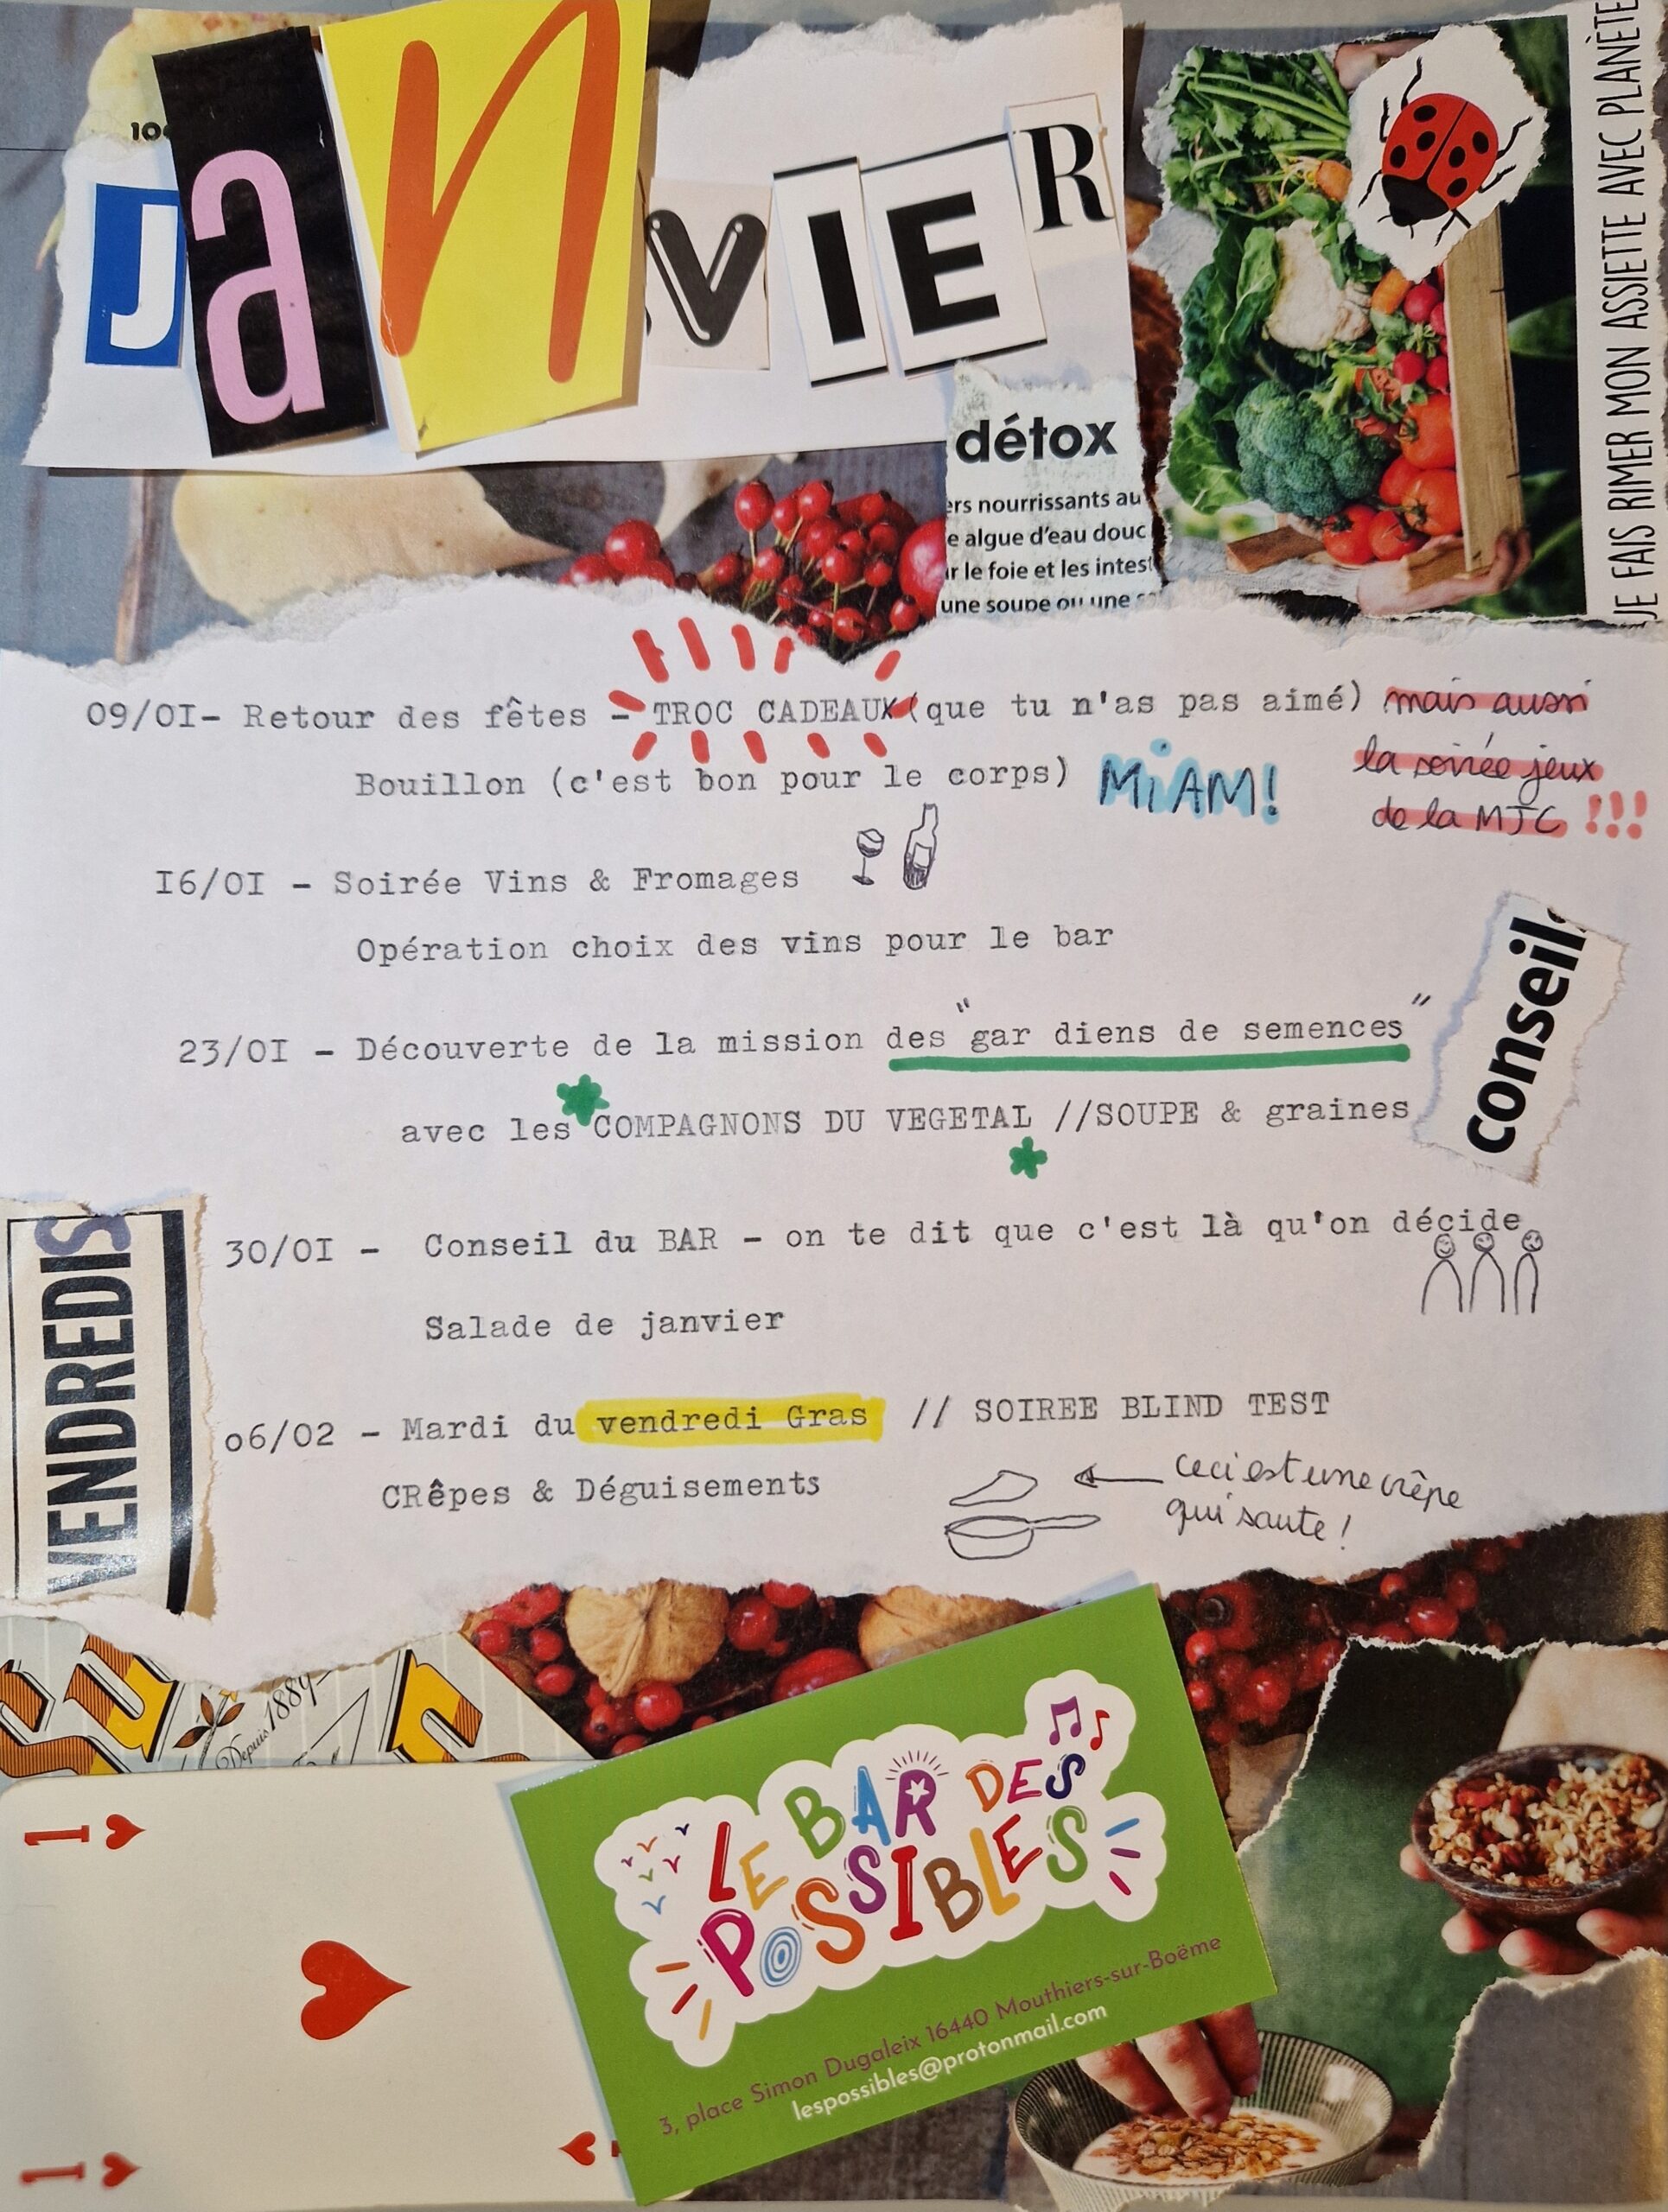 JanVIER
détox
ers nourrissants au
e algue d'eau douc
r le foie et les intest
une soupe ou une
JE FAIS RIMER MON ASSIETTE AVEC PLANÈTE
09/0I- Retour des fêtes - TROC CADEAUX (que tu n'as pas aimé) mais aussi
la soirée jeux
de la MJC !!!
Bouillon (c'est bon pour le corps) MiAM!
I6/0I - Soirée Vins & Fromages
Opération choix des vins pour le bar
conseil
23/0I - Découverte de la mission des "gar diens de semences"
avec les COMPAGNONS DU VEGETAL //SOUPE & graines
VENDREDIS
30/0I - Conseil du BAR - on te dit que c'est là qu'on décide
Salade de janvier
o6/02 - Mardi du vendredi Gras // SOIREE BLIND TEST
CRêpes & Déguisements
ceci est une crêpe
qui saute !
Su
Depuis 1889
1
1
LE BAR DES
POSSIBLES
3, place Simon Dugaleix 16440 Mouthiers-sur-Boëme
lespossibles@protonmail.com